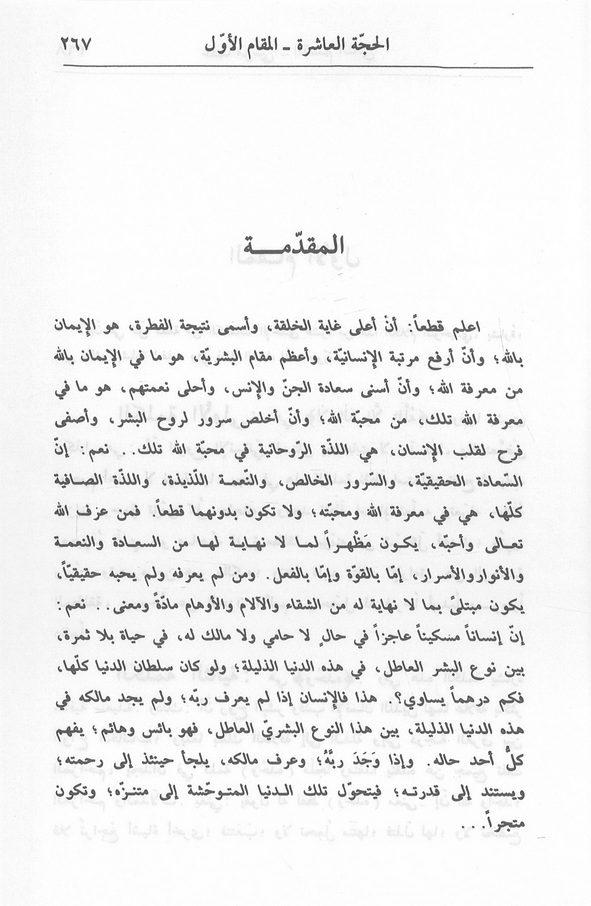 الحجّة العاشرة - المقام الأوّل ٢٦٧
المقدّمـــة
اعلم قطعاً: أنّ أعلى غاية الخلقة، وأسمى نتيجة الفطرة، هو الإيمان
بالله؛ وأنّ أرفع مرتبة الإنسانيّة، وأعظم مقام البشريّة، هو ما في الإيمان بالله
من معرفة الله؛ وأنّ أسنى سعادة الجنّ والإنس، وأحلى نعمتهم، هو ما في
معرفة الله تلك، من محبّة الله؛ وأنّ أخلص سرور لروح البشر، وأصفى
فرح لقلب الإنسان، هي اللذة الرّوحانية في محبّة الله تلك.. نعم: إنّ
السّعادة الحقيقيّة، والسّرور الخالص، والنّعمة اللّذيذة، واللذة الصافية
كلّها، هي في معرفة الله ومحبّته؛ ولا تكون بدونهما قطعاً. فمن عزف الله
تعالى وأحبّه، يكـون مَظْهـراً لمـا لا نهـايـة لهـا من السعـادة والنعمـة
والأنواروالأسرار، إمّا بالقوّة وإمّا بالفعل. ومن لم يعرفه ولم يحبه حقيقيّاً،
يكون مبتلىً بما لا نهاية له من الشقاء والآلام والأوهام مادّةً ومعنى.. نعم:
إنّ إنساناً مسكيناً عاجزاً في حالٍ لا حامي ولا مالك له، في حياة بلا ثمرة،
بين نوع البشر العاطل، في هذه الدنيا الذليلة؛ ولو كان سلطان الدنيا كلّها،
فكم درهماً يساوي؟. هذا فالإنسان إذا لم يعرف ربّه؛ ولم يجد مالكه في
هذه الدنيا الذليلة، بين هذا النوع البشريّ العاطل، فهو بائس وهائم؛ يفهم
كلُّ أحد حاله. وإذا وَجَدَ ربَّهُ؛ وعرف مالكه، يلجأ حينئذ إلى رحمته؛
ويستند إلى قدرتـه؛ فيتحوّل تلك الـدنيا المتـوحّشة إلى متنـزّه؛ وتكون
متجراً...